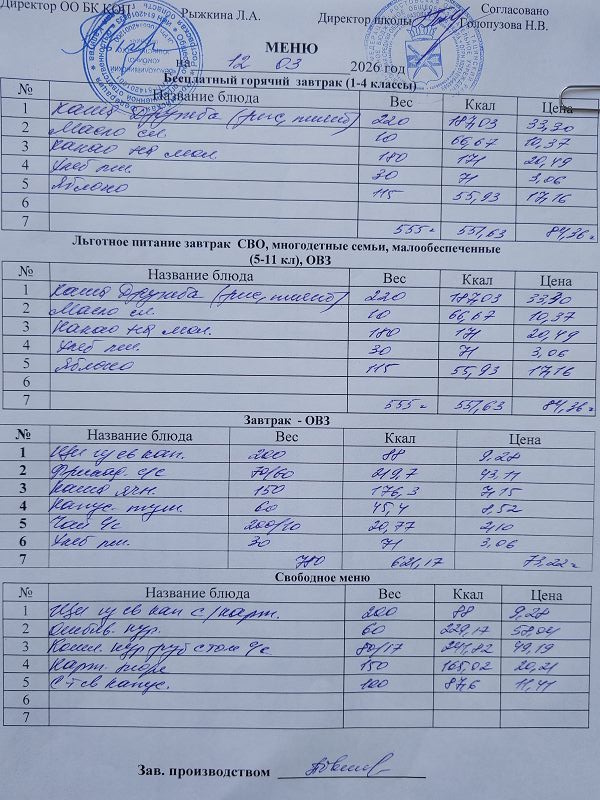 Директор ОО БК КОП Рыжкина Л.А. Согласовано
Директор школы Голопузова Н.В.
МЕНЮ
на 12 03 2026 год
Бесплатный горячий завтрак (1-4 классы)
№ Название блюда Вес Ккал Цена
1 Каша Дружба (рис, пшено) 220 187,03 33,30
2 Масло сл. 10 66,67 10,37
3 Какао на мол 180 171 20,49
4 Хлеб пш. 30 71 3,06
5 Яблоко 115 55,93 17,16
6
7 555 551,63 84,36
Льготное питание завтрак СВО, многодетные семьи, малообеспеченные
(5-11 кл), ОВЗ
№ Название блюда Вес Ккал Цена
1 Каша Дружба (рис, пшено) 220 187,03 33,30
2 Масло сл. 10 66,67 10,37
3 Какао на мол. 180 171 20,49
4 Хлеб пш. 30 71 3,06
5 Яблоко 115 55,93 17,16
6
7 555 551,63 84,36
Завтрак - ОВЗ
№ Название блюда Вес Ккал Цена
1 Щи из св кап. 200 88 9.28
2 Фрикад. с/с 70/60 219,7 43,11
3 Каша ячн. 150 176,3 7,15
4 Капус. туш. 60 45,4 8,52
5 Чай с/с 200/10 20,77 2,10
6 Хлеб пш. 30 71 3,06
7 780 621,17 73,22
Свободное меню
№ Название блюда Вес Ккал Цена
1 Щи из св кап с/карт. 200 88 9.28
2 Отбив. кур. 60 229,17 58,04
3 кур руб 80/17 241,82 49,19
4 Карт. пюре 150 165,02 20,21
5 С-т св капус. 100 87,6 11,41
6
7
Зав. производством